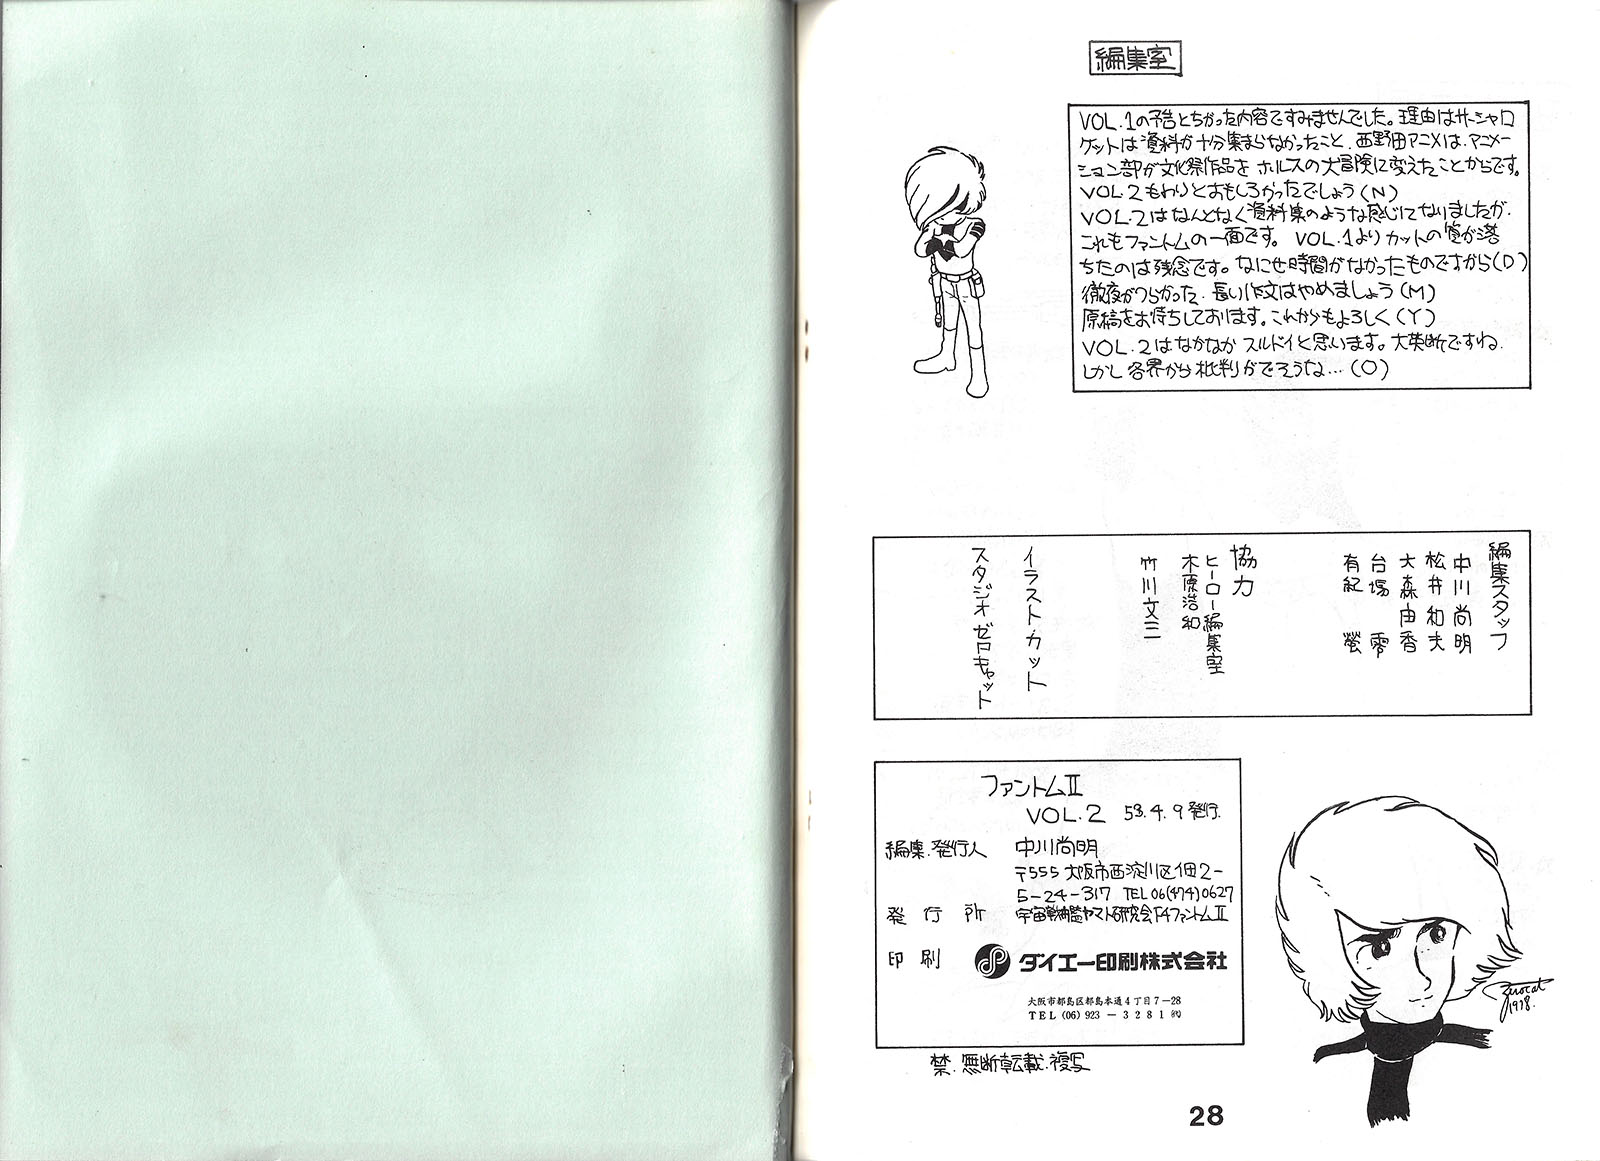 編集室
VOL.1の予告とちがった内容ですみませんでした。理由はサーシャロ
ケットは資料が十分集まらなかったこと、西野田アニメは、アニメー
ション部が文化祭作品を ホルスの大冒険に変えたことからです。
VOL.2もわりとおもしろかったでしょう(N)
VOL.2はなんとなく資料集のような感じになりましたが、
これもファントムの一面です。 VOL.1よりカットの質が落
ちたのは残念です。なにせ時間がなかったものですから(D)
徹夜がつらかった、長い作文はやめましょう(M)
原稿をお待ちしております。これからもよろしく(Y)
VOL.2はなかなか スルドイと思います。大英断ですね、
しかし各界から批判がでそうな…(O)
編集スタッフ
中川尚明
松井和夫
大森由香
台場 零
有紀 螢
協力
ヒーロー編集室
木原浩和
竹川文三
イラスト・カット
スタジオゼロキャット
ファントムⅡ
VOL.2 53.4.9発行.
編集.発行人 中川尚明
〒555 大阪市西淀川区佃2-
5-24-317 TEL06(474)0627
発行所 宇宙戦艦ヤマト研究会F4ファントムⅡ
印刷 ダイエー印刷株式会社
大阪市都島区都島本通4丁目7-28
TEL (06) 923-3281 ㈹
禁.無断転載.複写
Zerocat
1978.
28